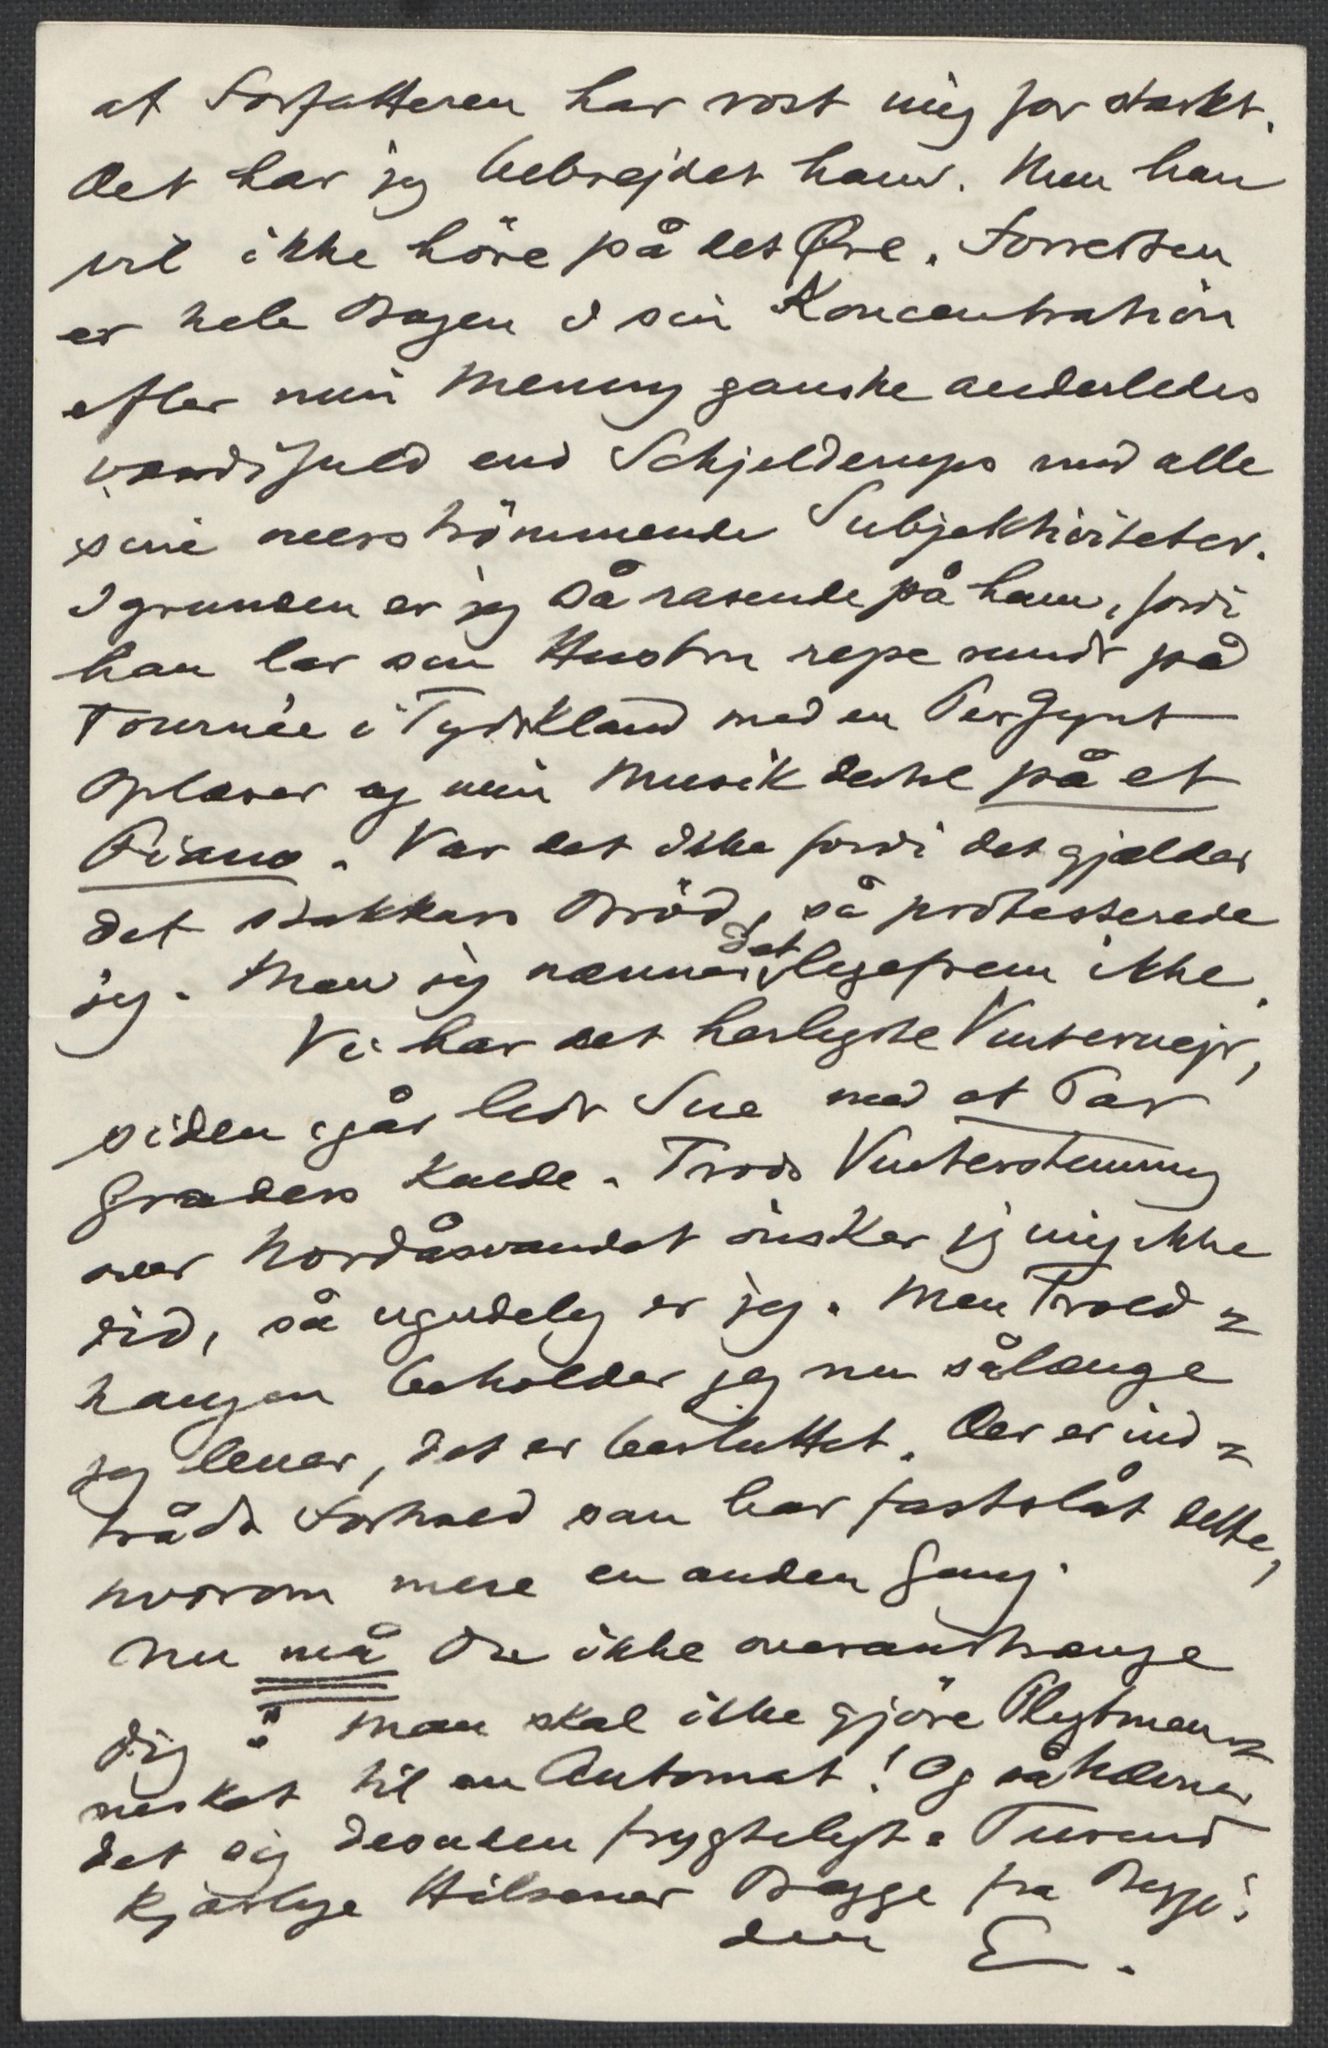 at Forfatteren har rost mig for stærkt.
Det har jeg bebrejdet ham. Men han
vil ikke höre på det Øre. Forresten
er hele Bogen i sin Koncentration
efter min Mening ganske anderledes
værdifuld end Schjelderups med alle
sine overströmmende Subjektiviteter.
I grunden er jeg så rasende på ham, fordi
han lar sin Hustru rejse rundt på
Tournée i Tydskland med en Per Gynt
Oplæser og min Musik dertil på et
Piano. Var det ikke fordi det gjælder
det stakkars Bröd, så protesterede
jeg. Men jeg nænner det ligefrem ikke.
Vi har det herligste Vintervejr,
siden igår lidt Sne med et Par
Graders Kulde. Trods Vinterstemning
over Nordåsvandet önsker jeg mig ikke
did, så ugudelig er jeg. Men Trold=
haugen beholder jeg nu sålænge
jeg lever, det er besluttet. Der er ind=
trådt Forhold som har fastslåt dette,
hvorom mere en anden Gang.
Nu må Du ikke overanstrænge
Dig: man skal ikke gjöre Pligtmen=
nesket til en Automat! Og så hævner
det sig desuden frygteligt. Tusend
kjærlige Hilsener Begge fra Begge!
din E.